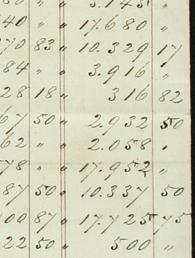 3.145 "
40 " " 17.680 "
70 83 " 10.329 17
84 " " 3.916 "
28 18 " 316 82
67 50 " 2.932 50
62 " " 2.058 "
78 " " 17.952 "
87 50 " 10.337 50
00 87 " 17.725 75
22 50 " 500 "